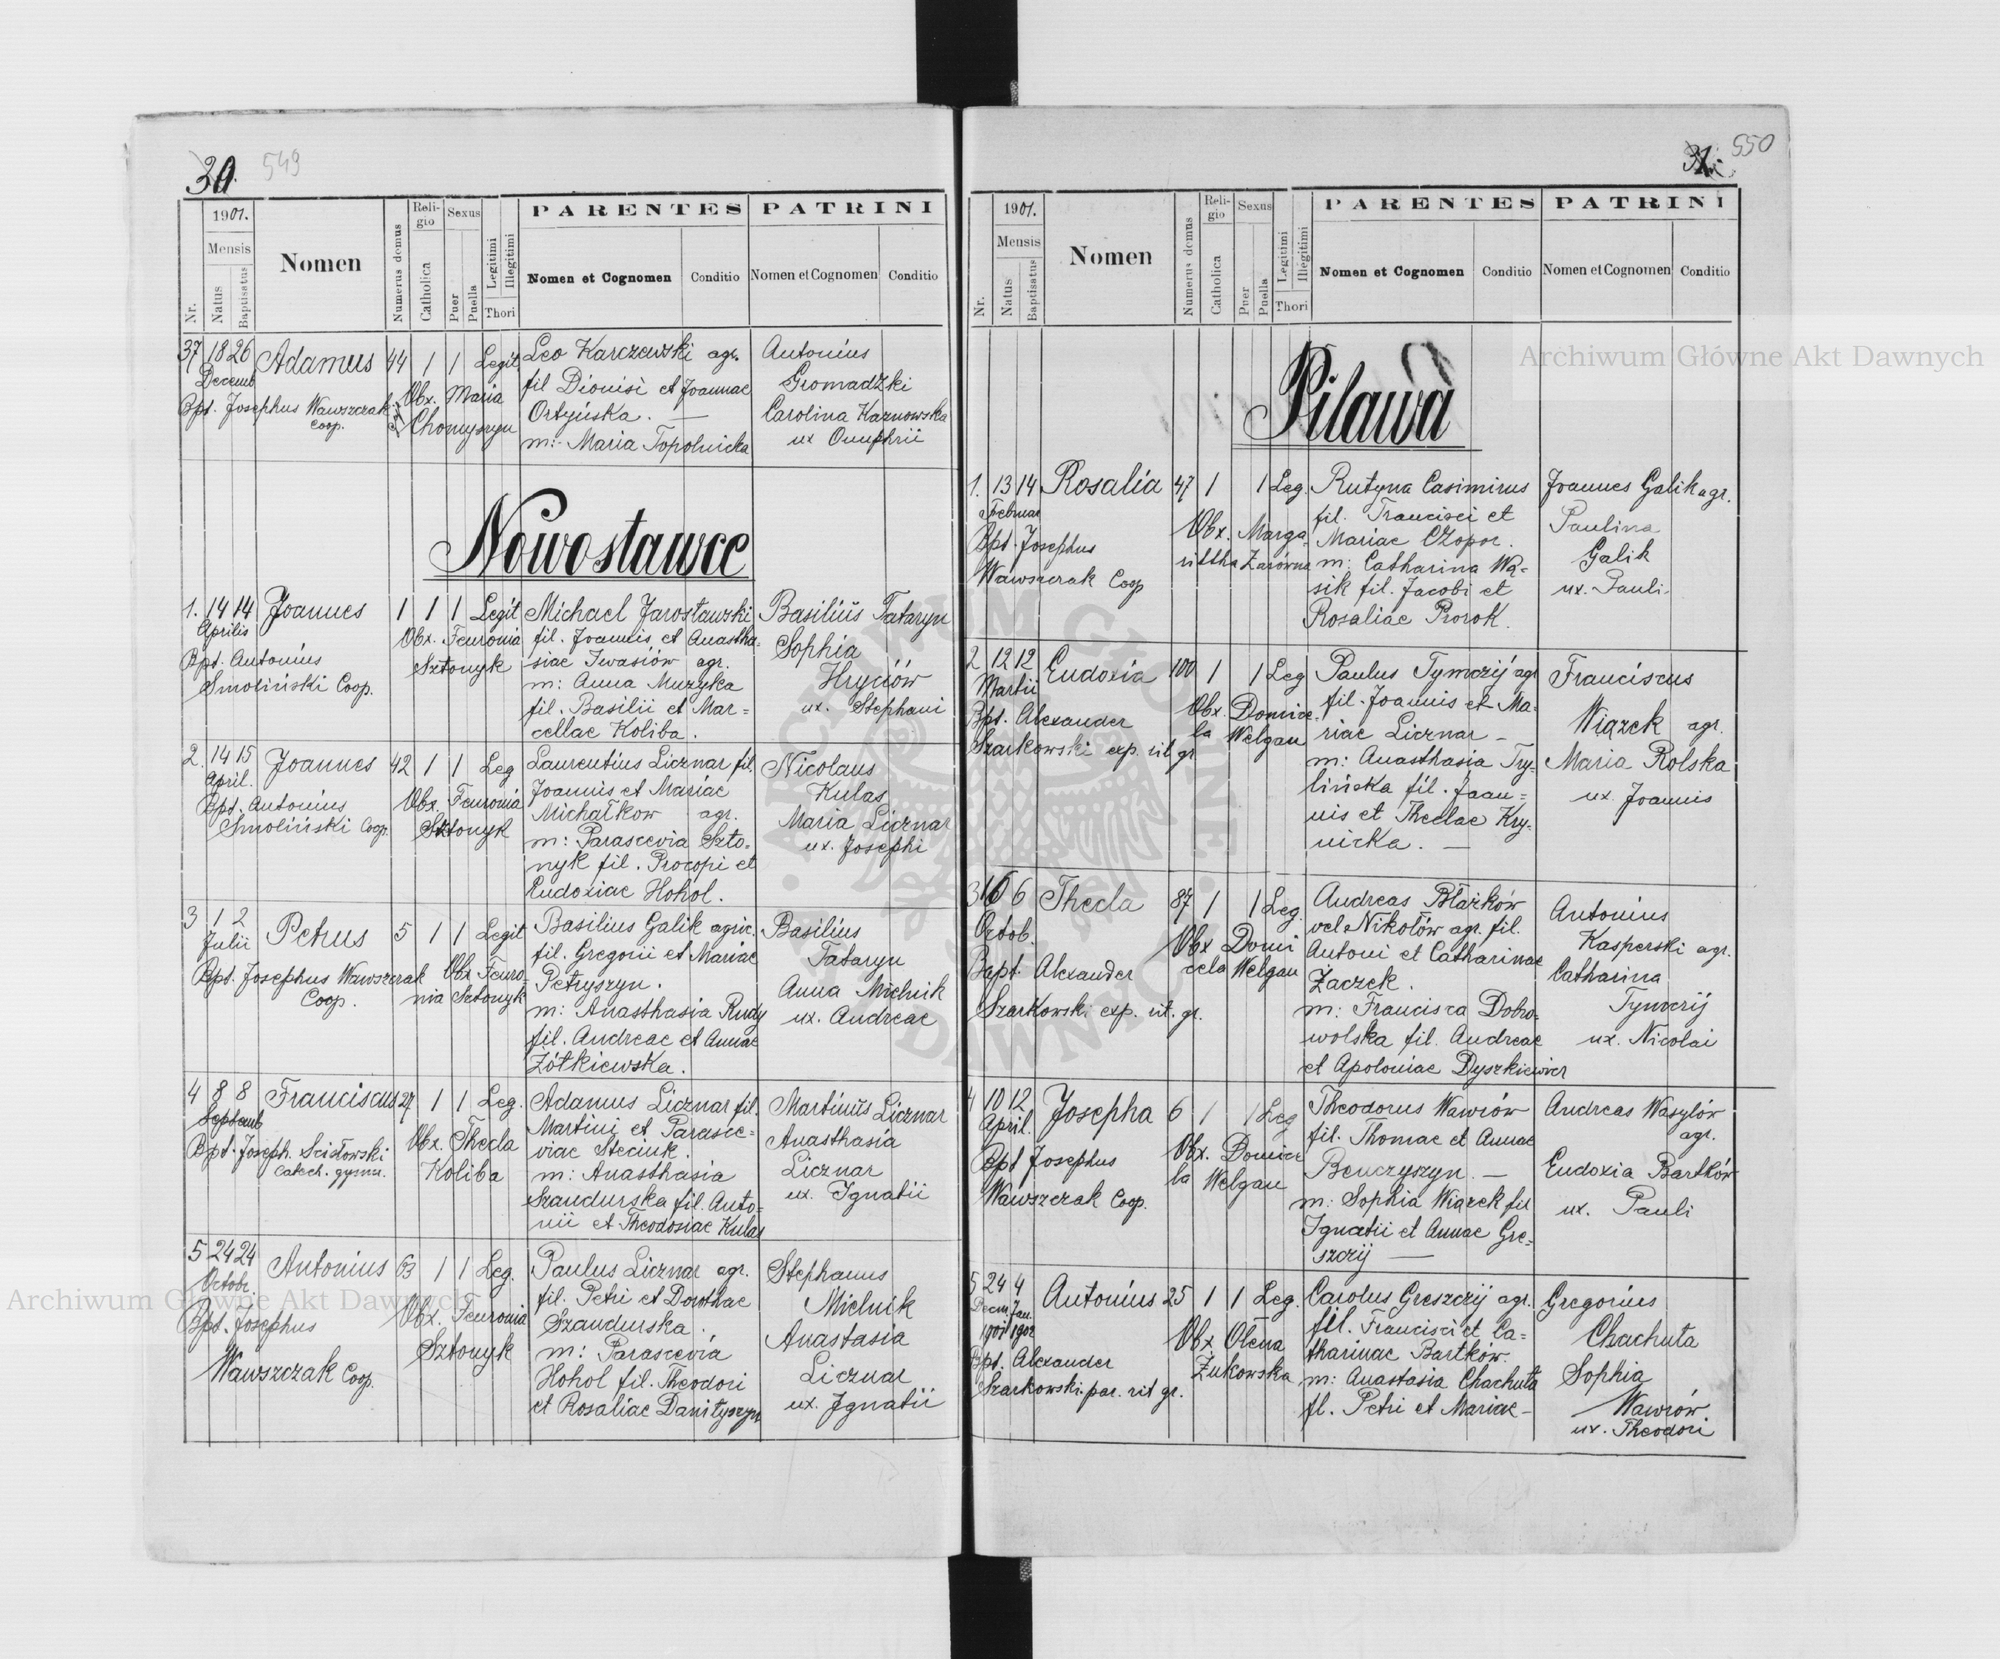 30. 549
1901.
Mensis
Nr.
Natus
Baptisatus
Nomen
Numerus domus
Religio
Catholica
Sexus
Puer
Puella
Legitimi
Illegitimi
Thori
PARENTES
Nomen et Cognomen
Conditio
PATRINI
Nomen et Cognomen
Conditio
37 18 26 Adamus 44 1 1 Legit. Leo Karczewski agr. Antonius
Decemb. Obx. Maria fil Dionisi et Joannae Gromadzki
Bpt. Josephus Wawszczak Chomyszyn Ortyńska. — Carolina Karnowska
Coop. m:- Maria Topolnicka ux Onuphrii
Nowostawce
1. 14 14 Joannes 1 1 1 Legit Michael Jarosławski Basilius Tataryn
Aprilis Obx. Feuronia fil. Joannis et Anastha- Sophia
Bpt. Antonius Sztonyk siae Iwasiów agr. Hryciów
Smoliński Coop. m: Anna Muzyka ux. Stephani
fil. Basilii et Mar=
cellae Koliba.
2. 14 15 Joannes 42 1 1 Leg Laurentius Licznar fil. Nicolaus
April. Obx. Feuronia Joannis et Mariae Kulas
Bpt. Antonius Sztonyk Michałkow agr. Maria Licznar
Smoliński Coop. m: Parascevia Szto= ux. Josephi
nyk fil. Procopi et
Eudoxiae Hohol.
3 1 2 Petrus 5 1 1 Legit Basilius Galik agric. Basilius
Julii Obx Feuro- fil. Gregorii et Mariae Tataryn
Bpt. Josephus Wawszczak nia Sztonyk Petryszyn. Anna Michnik
Coop. m: Anasthasia Rudy ux. Andreae
fil. Andreae et Annae
Żółkiewska.
4 8 8 Franciscus 27 1 1 Leg. Adamus Licznar fil. Martinus Licznar
Septemb Obx. Thecla Martini et Parasce= Anasthasia
Bpt. Joseph. Scisłowski Koliba viae Steciuk. Licznar
Catech. gymn. m: Anasthasia ux. Ignatii
Szandurska fil. Anto=
nii et Theodosiae Kulas
5 24 24 Antonius 63 1 1 Leg. Paulus Licznar agr. Stephanus
Octobr. Obx. Feuronia fil. Petri et Dorothae Mielnik
Bpt. Josephus Sztonyk Szandurska. Anastasia
Wawszczak Coop. m: Parascevia Licznar
Hohol fil. Theodori ux. Ignatii
et Rosaliae Daniłyszyn
31. 550
1901.
Mensis
Nr.
Natus
Baptisatus
Nomen
Numerus domus
Religio
Catholica
Sexus
Puer
Puella
Legitimi
Illegitimi
Thori
PARENTES
Nomen et Cognomen
Conditio
PATRINI
Nomen et Cognomen
Conditio
Pilawa
1. 13 14 Rosalia 47 1 1 Leg. Rutyna Casimirus Joannes Galik agr.
Februar Obx. Marga- fil. Francisci et Paulina
Bpt. Josephus rittha Żarówna Mariae Czopor. Galik
Wawszczak Coop m: Catharina Wą- ux. Pauli.
sik fil. Jacobi et
Rosaliae Prorok.
2 12 12 Eudoxia 100 1 1 Leg Paulus Tymczij agr Franciscus
Martii Obx. Domice- fil. Joannis et Ma- Wiązek agr.
Bpt. Alexander la Welgan riae Licznar — Maria Rolska
Szarkowski exp. rit gr m: Anasthasia Try- ux. Joannis
lińska fil. Joan=
nis et Theclae Kry-
nicka. —
3 16 6 Thecla 87 1 1 Leg. Andreas Błażków Antonius
Octob. Obx Domi vel Nikołów agr. fil. Kasperski agr.
Bapt. Alexander cela Welgan Antoni et Catharinae Catharina
Szarkowski exp. rit. gr. Żaczek. Tymczij
m: Francisca Dobro- ux. Nicolai
wolska fil. Andreae
et Apoloniae Dyszkiewicz
4 10 12 Josepha 6 1 1 Leg Theodorus Wawrów Andreas Wasylów
April. Obx. Domice fil. Thomae et Annae agr.
Bpt Josephus la Welgan Benczyszyn. — Eudoxia Bartków
Wawszczak Coop. m: Sophia Wiązek fil ux. Pauli
Ignatii et Annae Gre=
szczij —
5 24 4 Antonius 25 1 1 Leg. Carolus Greszczij agr. Gregorius
Decm. Jan. Obx. Olena fil. Francisci et Ca= Chachuta
1901 1902 Żukowska tharinae Bartków. Sophia
Bpt. Alexander m: Anastasia Chachuta Wawrów
Szarkowski par. rit gr. fl. Petri et Mariae — ux. Theodori
Archiwum Główne Akt Dawnych
Archiwum Główne Akt Dawnych
ARCHIWUM GŁÓWNE AKT DAWNYCH